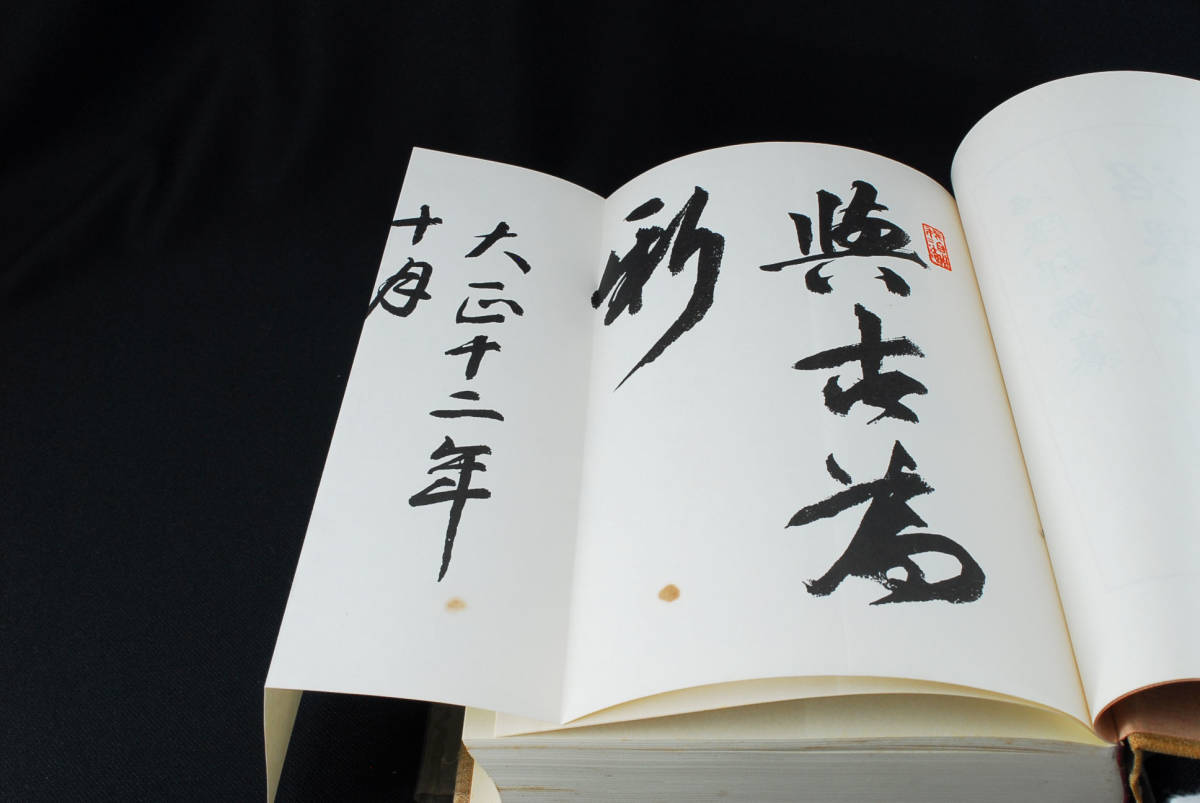 與古為
新
大正十二年
十月